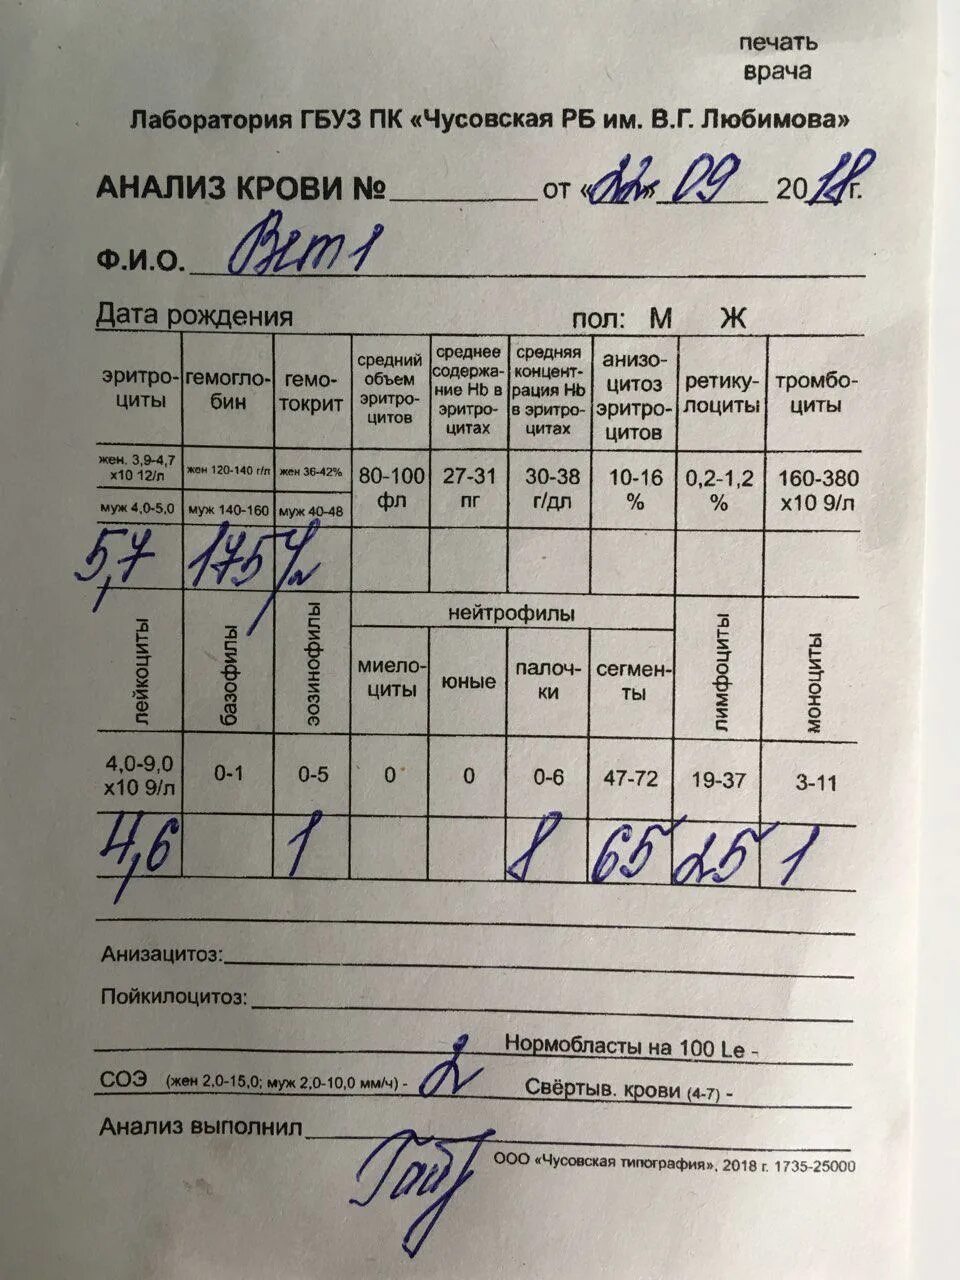 печать
врача
Лаборатория ГБУЗ ПК «Чусовская РБ им. В.Г. Любимова»
АНАЛИЗ КРОВИ №________ от «22» 09 2018г.
Ф.И.О.
Дата рождения пол: М Ж
эритро-
циты
гемогло-
бин
гемо-
токрит
средний
объем
эритро-
цитов
среднее
содержа-
ние Hb в
эритро-
цитах
средняя
концент-
рация Hb
в эритро-
цитах
анизо-
цитоз
эритро-
цитов
ретику-
лоциты
тромбо-
циты
жен. 3,9-4,7
х10 12/л
жен 120-140 г/л
жен 36-42%
80-100
фл
27-31
пг
30-38
г/дл
10-16
%
0,2-1,2
%
160-380
х10 9/л
муж 4,0-5,0
муж 140-160
муж 40-48
5,7 175
лейкоциты
базофилы
эозинофилы
нейтрофилы
миело-
циты
юные
палоч-
ки
сегмен-
ты
лимфоциты
моноциты
4,0-9,0
х10 9/л
0-1
0-5
0
0
0-6
47-72
19-37
3-11
4,6 1 8 65 25 1
Анизацитоз:
Пойкилоцитоз:
Нормобласты на 100 Le -
СОЭ (жен 2,0-15,0; муж 2,0-10,0 мм/ч) - 2
Свёртыв. крови (4-7) -
Анализ выполнил
ООО «Чусовская типография», 2018 г. 1735-25000